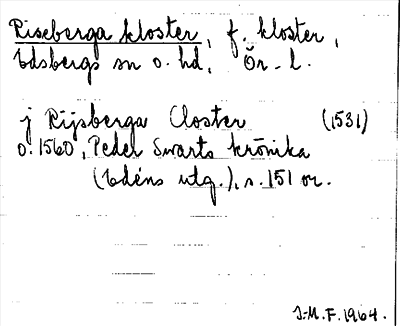 Riseberga kloster, f. kloster,
Edsbergs sn o. hd, Ör. l.
j Rijsberga Closter (1531)
o. 1560, Peder Swarts krönika
(Edéns utg.), s. 151 or.
J.M.F. 1964.